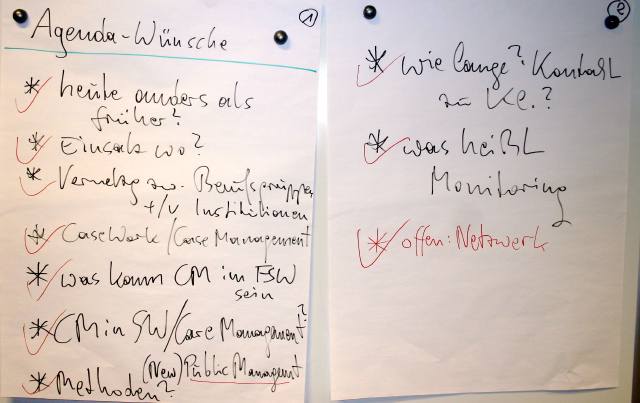 1
Agenda-Wünsche
* heute anders als
früher?
* Einsatz wo?
* Vernetzg zw. Berufsgruppen
+/v Institutionen
* CaseWork/Case Management
* was kann CM im FSW
sein
* CM in SW/Case Management?
(New) Public Managemt
* Methoden?
2
* wie lange? Kontakt
zu Kl.?
* was heißt
Monitoring
* offen: Netzwerk